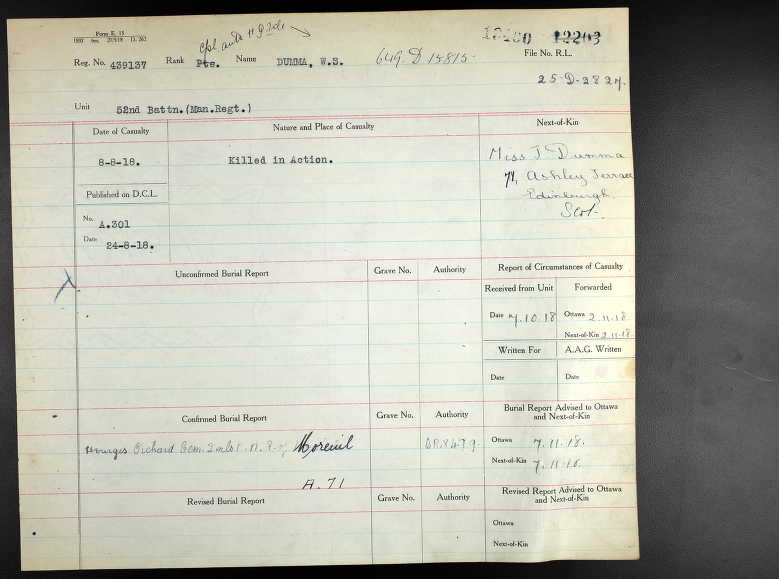 Form E. 15
Cpl.
12203
Reg. No. 439137 Rank Pte. Name DUMMA, W.S. 649-D-15815-
File No. R.L.
25-D-2827.
Unit 52nd Battn.(Man.Regt.)
Date of Casualty Nature and Place of Casualty Next-of-Kin
8-8-18. Killed in Action. Miss J Dumma
74, Ashley Terrace
Published on D.C.L. Edinburgh
Scot.
No. A.301
Date 24-8-18.
Unconfirmed Burial Report Grave No. Authority Report of Circumstances of Casualty
Received from Unit Forwarded
Date 7.10.18 Ottawa 2.11.18
Next-of-Kin 2.11.18.
Written For A.A.G. Written
Date Date
Confirmed Burial Report Grave No. Authority Burial Report Advised to Ottawa and Next-of-Kin
Hourges Orchard Cem. 2 mls. N. of Moreuil Ottawa 7.11.18.
Next-of-Kin 7.11.18.
A.71
Revised Burial Report Grave No. Authority Revised Report Advised to Ottawa and Next-of-Kin
Ottawa
Next-of-Kin